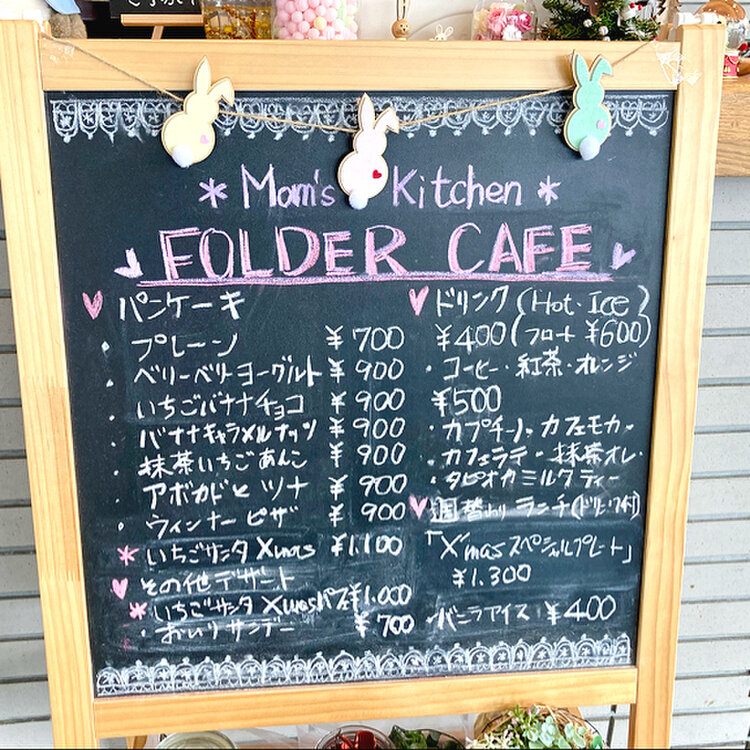 *Mom's Kitchen*
FOLDER CAFE
パンケーキ
・プレーン ¥700
・ベリーベリーヨーグルト ¥900
・いちごバナナチョコ ¥900
・バナナキャラメルナッツ ¥900
・抹茶いちごあんこ ¥900
・アボカドとツナ ¥900
・ウィンナーピザ ¥900
*いちごサンタXmas ¥1.100
その他デザート
*いちごサンタXmasパフェ ¥1.000
・おいりサンデー ¥700
ドリンク{Hot・Ice}
¥400(フロート ¥600)
・コーヒー・紅茶・オレンジ
¥500
・カプチーノ・カフェモカ・
・カフェラテ・抹茶オレ・
・タピオカミルクティー
週替わりランチ(ドリンク付)
「X'masスペシャルプレート」
¥1.300
・バニラアイス:¥400